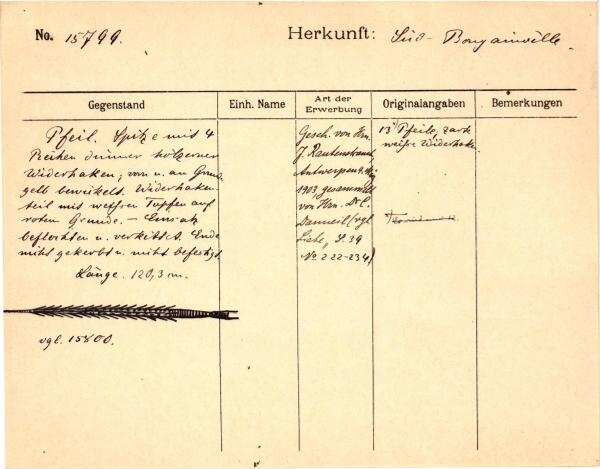 No. 15799. Herkunft: Süd-Bougainville.
Gegenstand Einh. Name Art der Erwerbung Originalangaben Bemerkungen
Pfeil. Spitze mit 4
Reihen dünner hölzerner
Widerhaken; vorn u. am Grunde
gelb bewickelt. Widerhaken-
teil mit weissen Tupfen auf
rotem Grunde. – Einsatz
beflochten u. verkittet. Ende
nicht gekerbt u. nicht befestigt.
Länge. 120,3 cm.
vgl. 15800.
Gesch. von Hrn.
J. Rautenstrauch,
Antwerpen
1903 gesammelt
von Hrn. Dr. C.
Danneil (vgl.
Liste, S. 39
No 222-234)
13 Pfeile, zarte
weisse Widerhaken